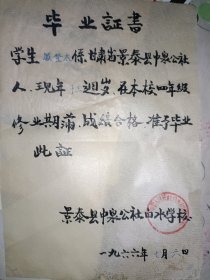 毕业証書
学生 係，甘肃省景泰县中泉公社
人，现年 岁，在本校四年级
修业期满，成绩合格，准予毕业
此証
景泰县中泉公社白水学校
一九六六年 月 日